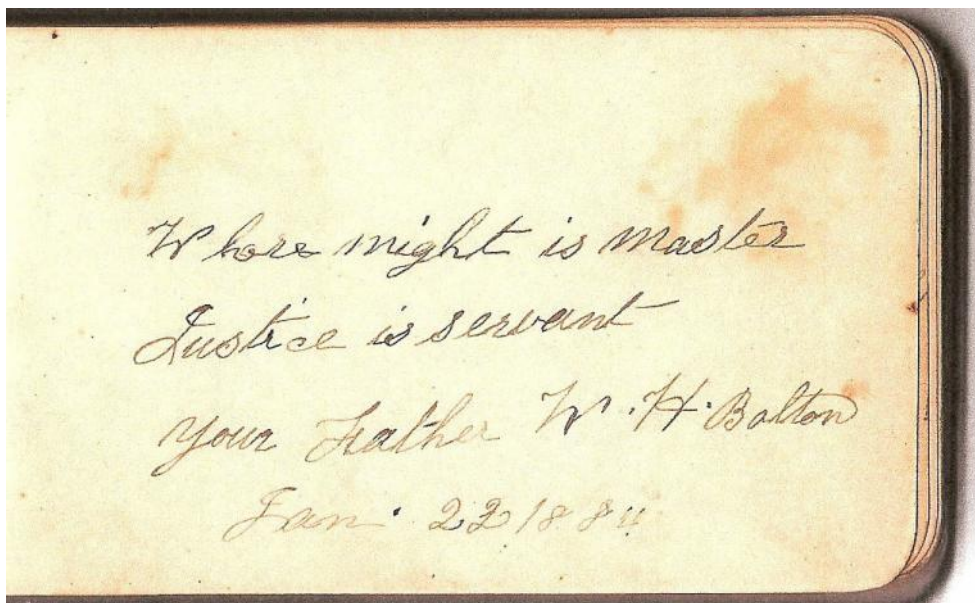 Where might is master
Justice is servant
your Father W. H. Bolton
Jan. 22 1884